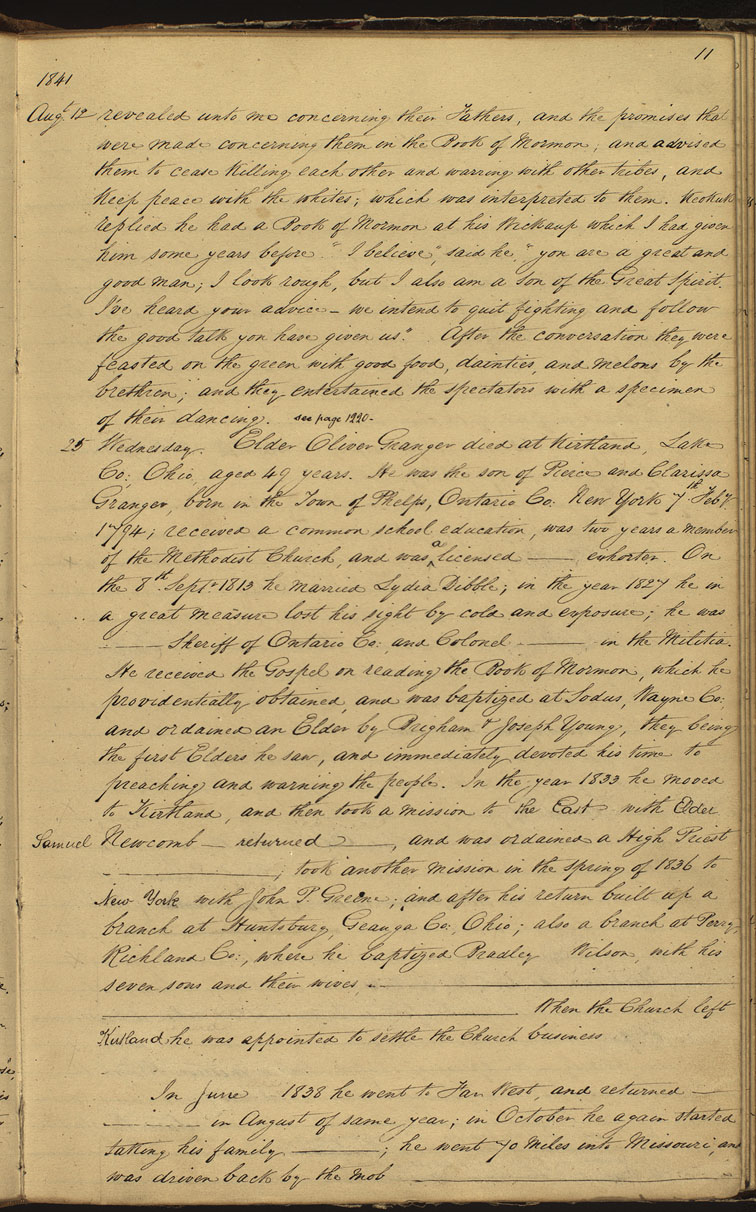 11
1841
Augt 12 revealed unto me concerning their Fathers, and the promises that
were made concerning them in the Book of Mormon; and advised
them to cease killing each other and warring with other tribes, and
keep peace with the whites; which was interpreted to them. Keokuk
replied he had a Book of Mormon at his Wickaup which I had given
him some years before. "I believe," said he, "you are a great and
good man; I look rough, but I also am a Son of the Great Spirit.
I've heard your advice — we intend to quit fighting and follow
the good talk you have given us." After the conversation they were
feasted on the green with good food, dainties, and melons by the
brethren; and they entertained the spectators with a specimen
of their dancing. see page 1220-
25 Wednesday. Elder Oliver Granger died at Kirtland, Lake
Co; Ohio, aged 49 years. He was the son of Pierce and Clarissa
Granger, born in the Town of Phelps, Ontario Co: New York 7th Feby
1794; received a common school education, was two years a member
of the Methodist Church, and was a licensed —— exhorter. On
the 8th Septr 1813 he married Lydia Dibble; in the year 1827 he in
a great measure lost his sight by cold and exposure; he was
—— Sheriff of Ontario Co: and Colonel —— in the Militia.
He received the Gospel on reading the Book of Mormon, which he
providentially obtained, and was baptized at Sodus, Wayne Co:
and ordained an Elder by Brigham & Joseph Young, they being
the first Elders he saw, and immediately devoted his time to
preaching and warning the people. In the year 1833 he moved
to Kirtland, and then took a mission to the East with Elder
Samuel Newcomb — returned ——, and was ordained a High Priest
——; took another mission in the spring of 1836 to
New York with John P. Greene; and after his return built up a
branch at Huntsburg, Geauga Co; Ohio; also a branch at Perry
Richland Co:, where he baptized Bradley Wilson, with his
seven sons and their wives. ——
—— When the Church left
Kirtland he was appointed to settle the Church business
In June 1838 he went to Far West, and returned —
—— in August of same year; in October he again started
taking his family ——; he went 70 miles into Missouri, and
was driven back by the mob ——